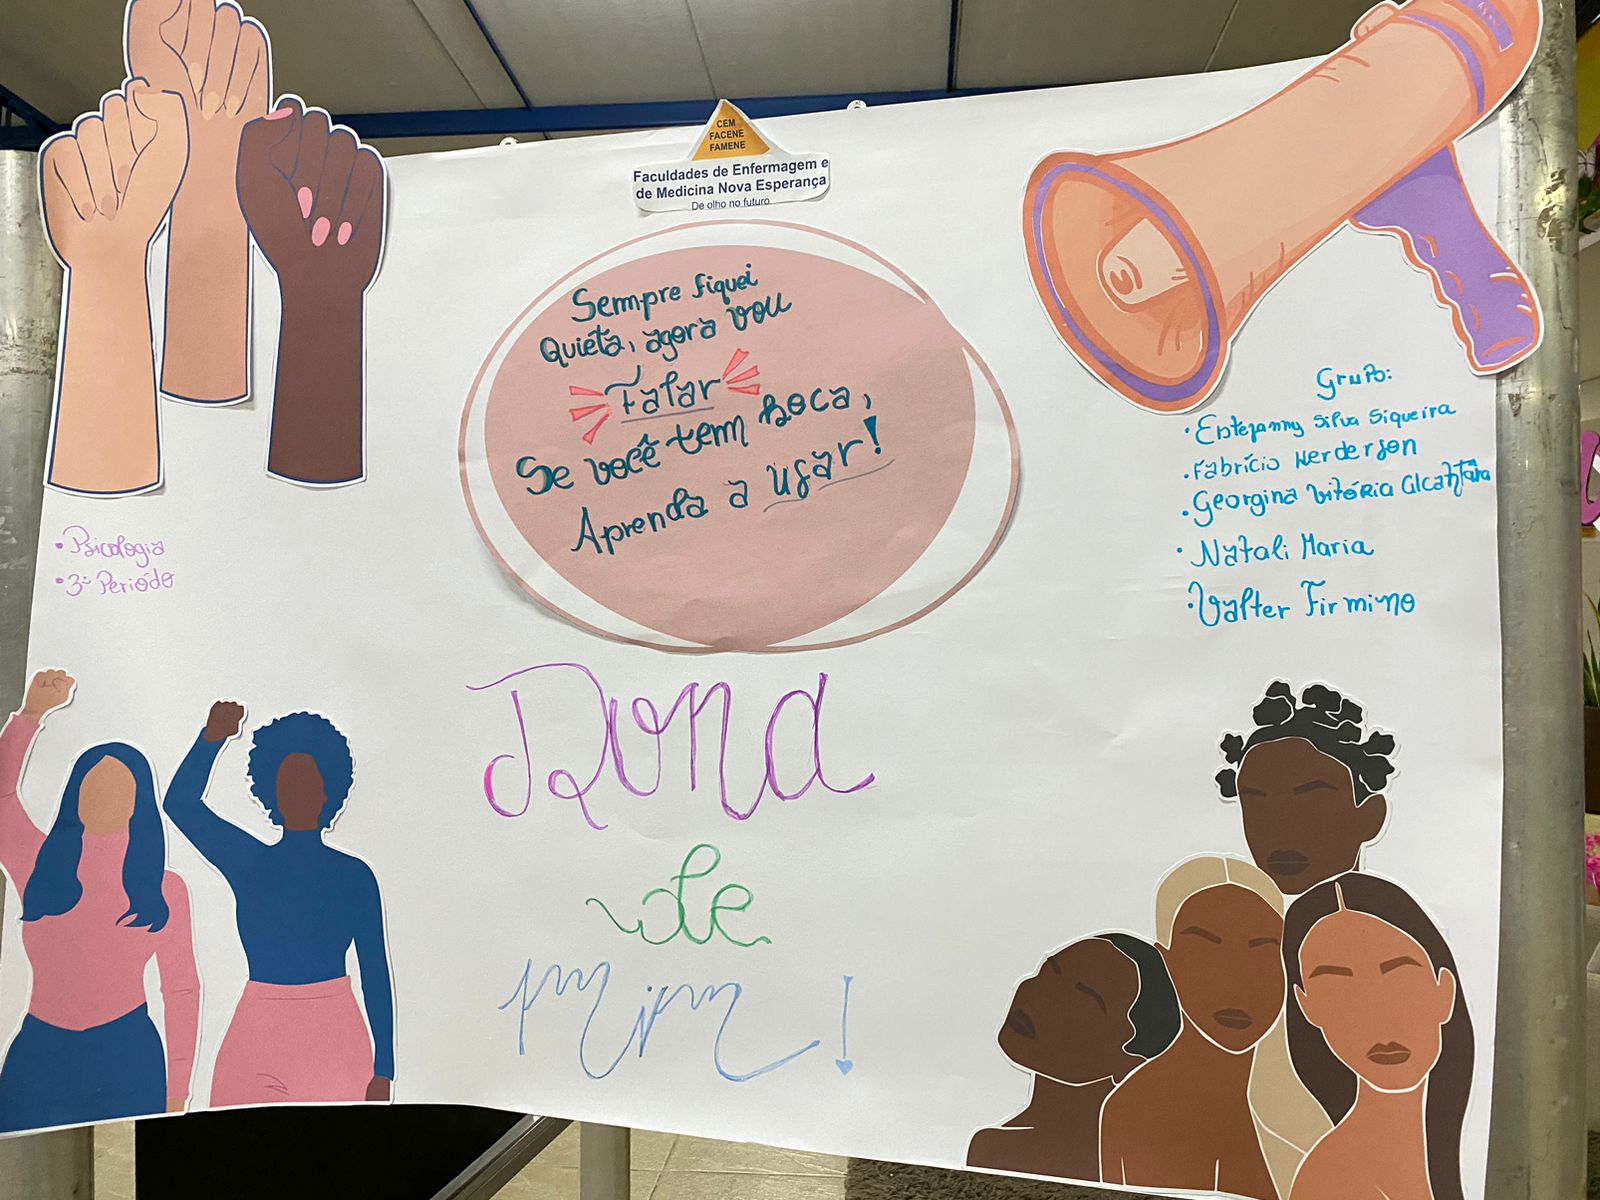 CEM
FACENE
FAMENE
Faculdades de Enfermagem e
de Medicina Nova Esperança
De olho no futuro
Sempre fiquei
Quieta, agora vou
Falar
Se você tem boca,
Aprenda a usar!
Grupo:
• Silva Siqueira
• Fabrício Herderson
• Georgina Vitória Alcantara
• Natali Maria
• Valter Firmino
• Psicologia
• 3º Período
Dona
de
mim!